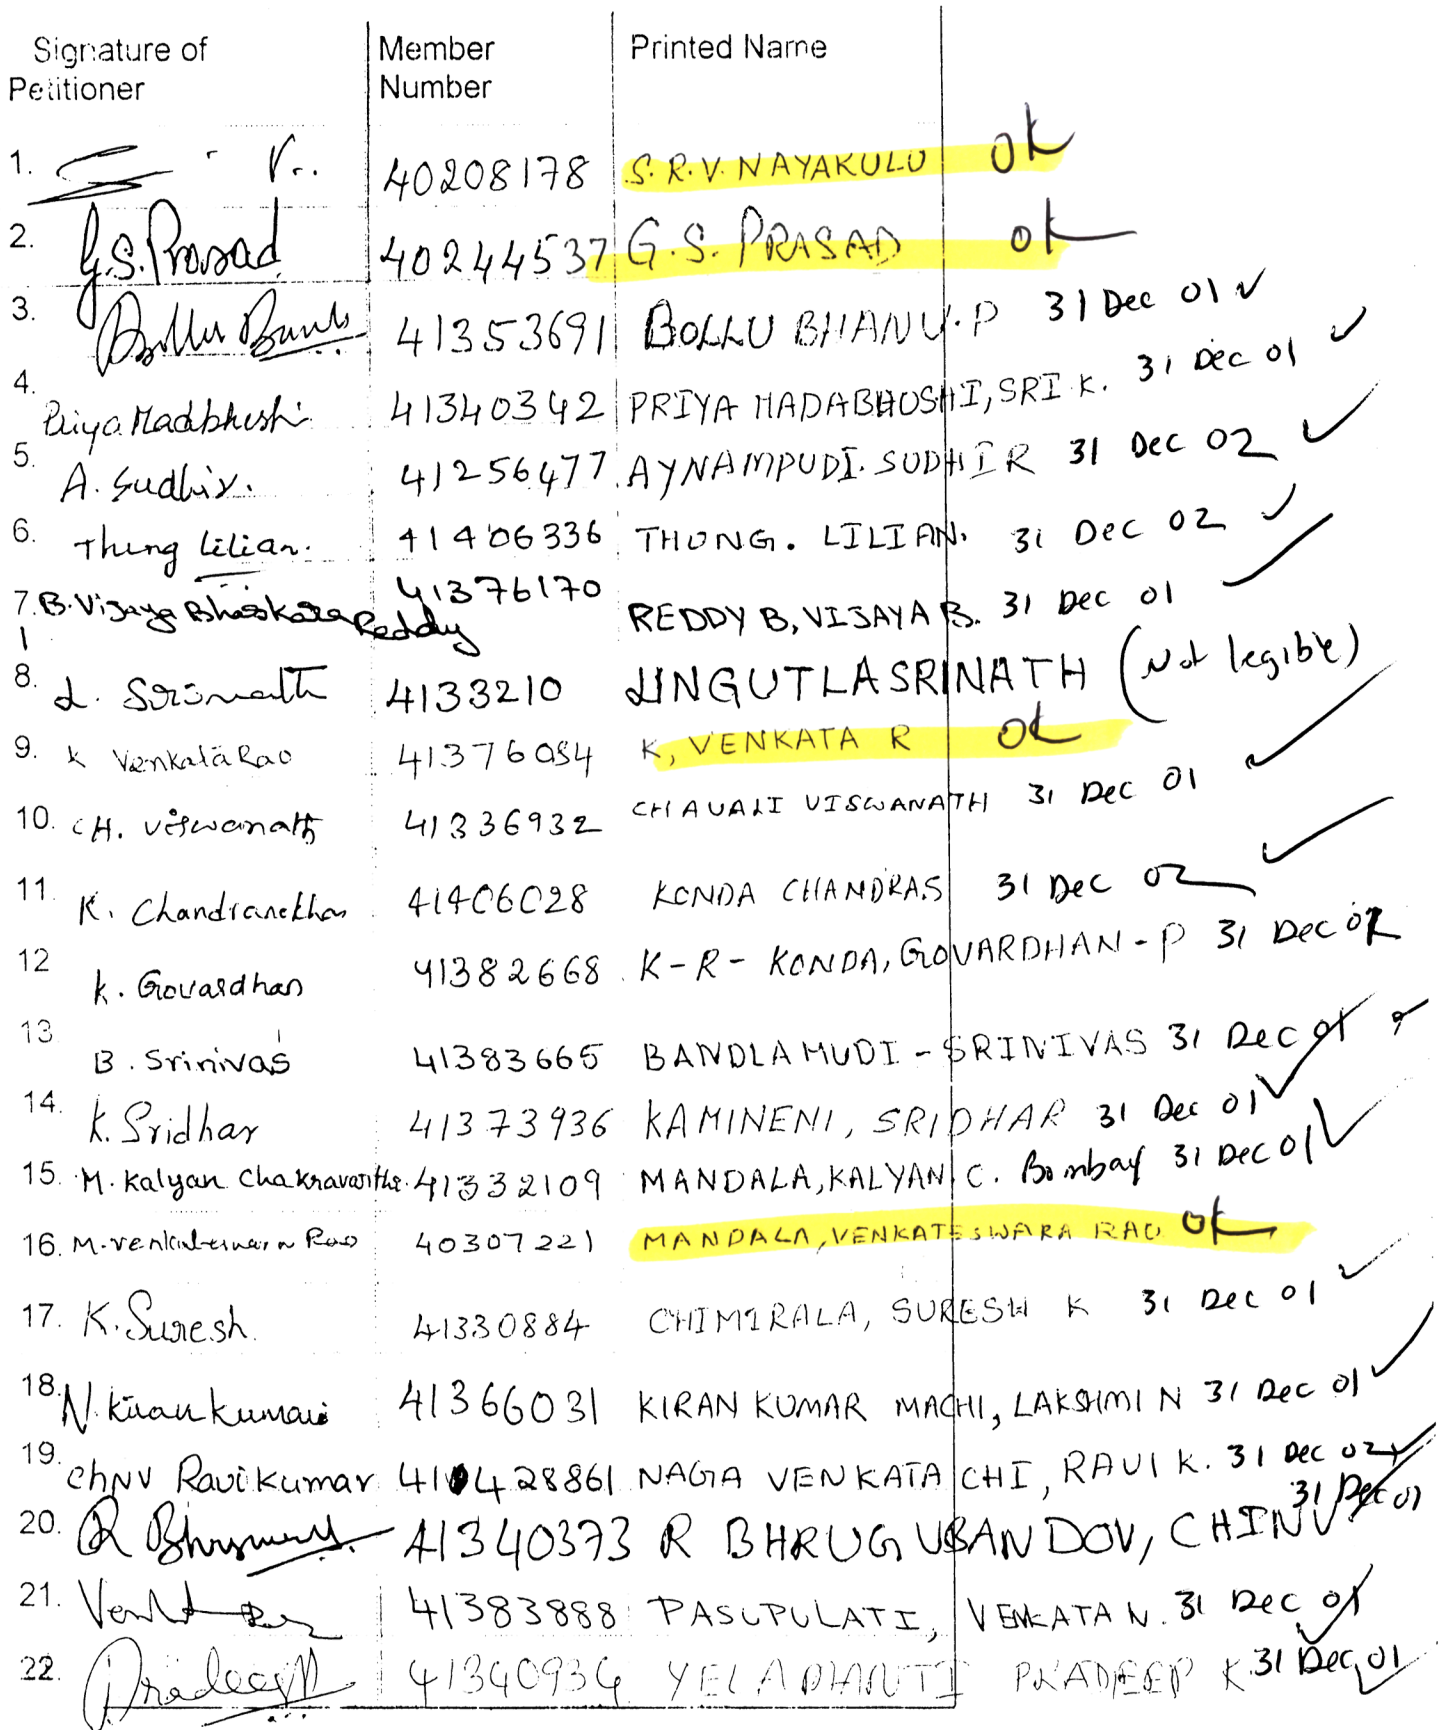 Signature of Petitioner Member Number Printed Name
1. V.. 40208178 S.R.V. NAYAKULU ok
2. G.S. Prasad 40244537 G.S. PRASAD ok
3. Bollu Banu 41353691 BOLLU BHANU.P 31 Dec 01
4. Priya Madbhushi 41340342 PRIYA MADABHUSHI, SRI K. 31 Dec 01
5. A. Sudhir. 41256477 AYNAMPUDI. SUDHIR 31 Dec 02
6. Thung Lilian. 41406336 THUNG. LILIAN. 31 Dec 02
7. B. Vijaya Bhaskara Reddy 41376170 REDDY B, VIJAYA B. 31 Dec 01
8. L. Srinath 4133210 LINGUTLA SRINATH (Not legible)
9. K Venkata Rao 41376084 K, VENKATA R ok
10. CH. Viswanath 41336932 CHAVALI VISWANATH 31 Dec 01
11. K. Chandrasekhar 41406028 KONDA CHANDRAS 31 Dec 02
12 K. Govardhan 41382668 K-R- KONDA, GOVARDHAN-P 31 Dec
13 B. Srinivas 41383665 BANDLAMUDI - SRINIVAS 31 Dec 01
14. K. Sridhar 41373936 KAMINENI, SRIDHAR 31 Dec 01
15. M. Kalyan Chakravarthi. 41332109 MANDALA, KALYAN C. Bombay 31 Dec 01
16. M. Venkateswara Rao 40307221 MANDALA, VENKATESWARA RAO ok
17. K. Suresh. 41330884 CHIMIRALA, SURESH K 31 Dec 01
18. N. Kiran kumar 41366031 KIRAN KUMAR MACHI, LAKSHMI N 31 Dec 01
19. ChNV Ravi kumar 410428861 NAGA VENKATA CHI, RAVI K. 31 Dec 02
20. R 41340373 R BHRUGUBANDOV, CHINV 31 Dec 01
21. 41383888 PASUPULATI, VENKATA N. 31 Dec 01
22. Pradeep 41340934 YELADHANTI PRADEEP K 31 Dec 01